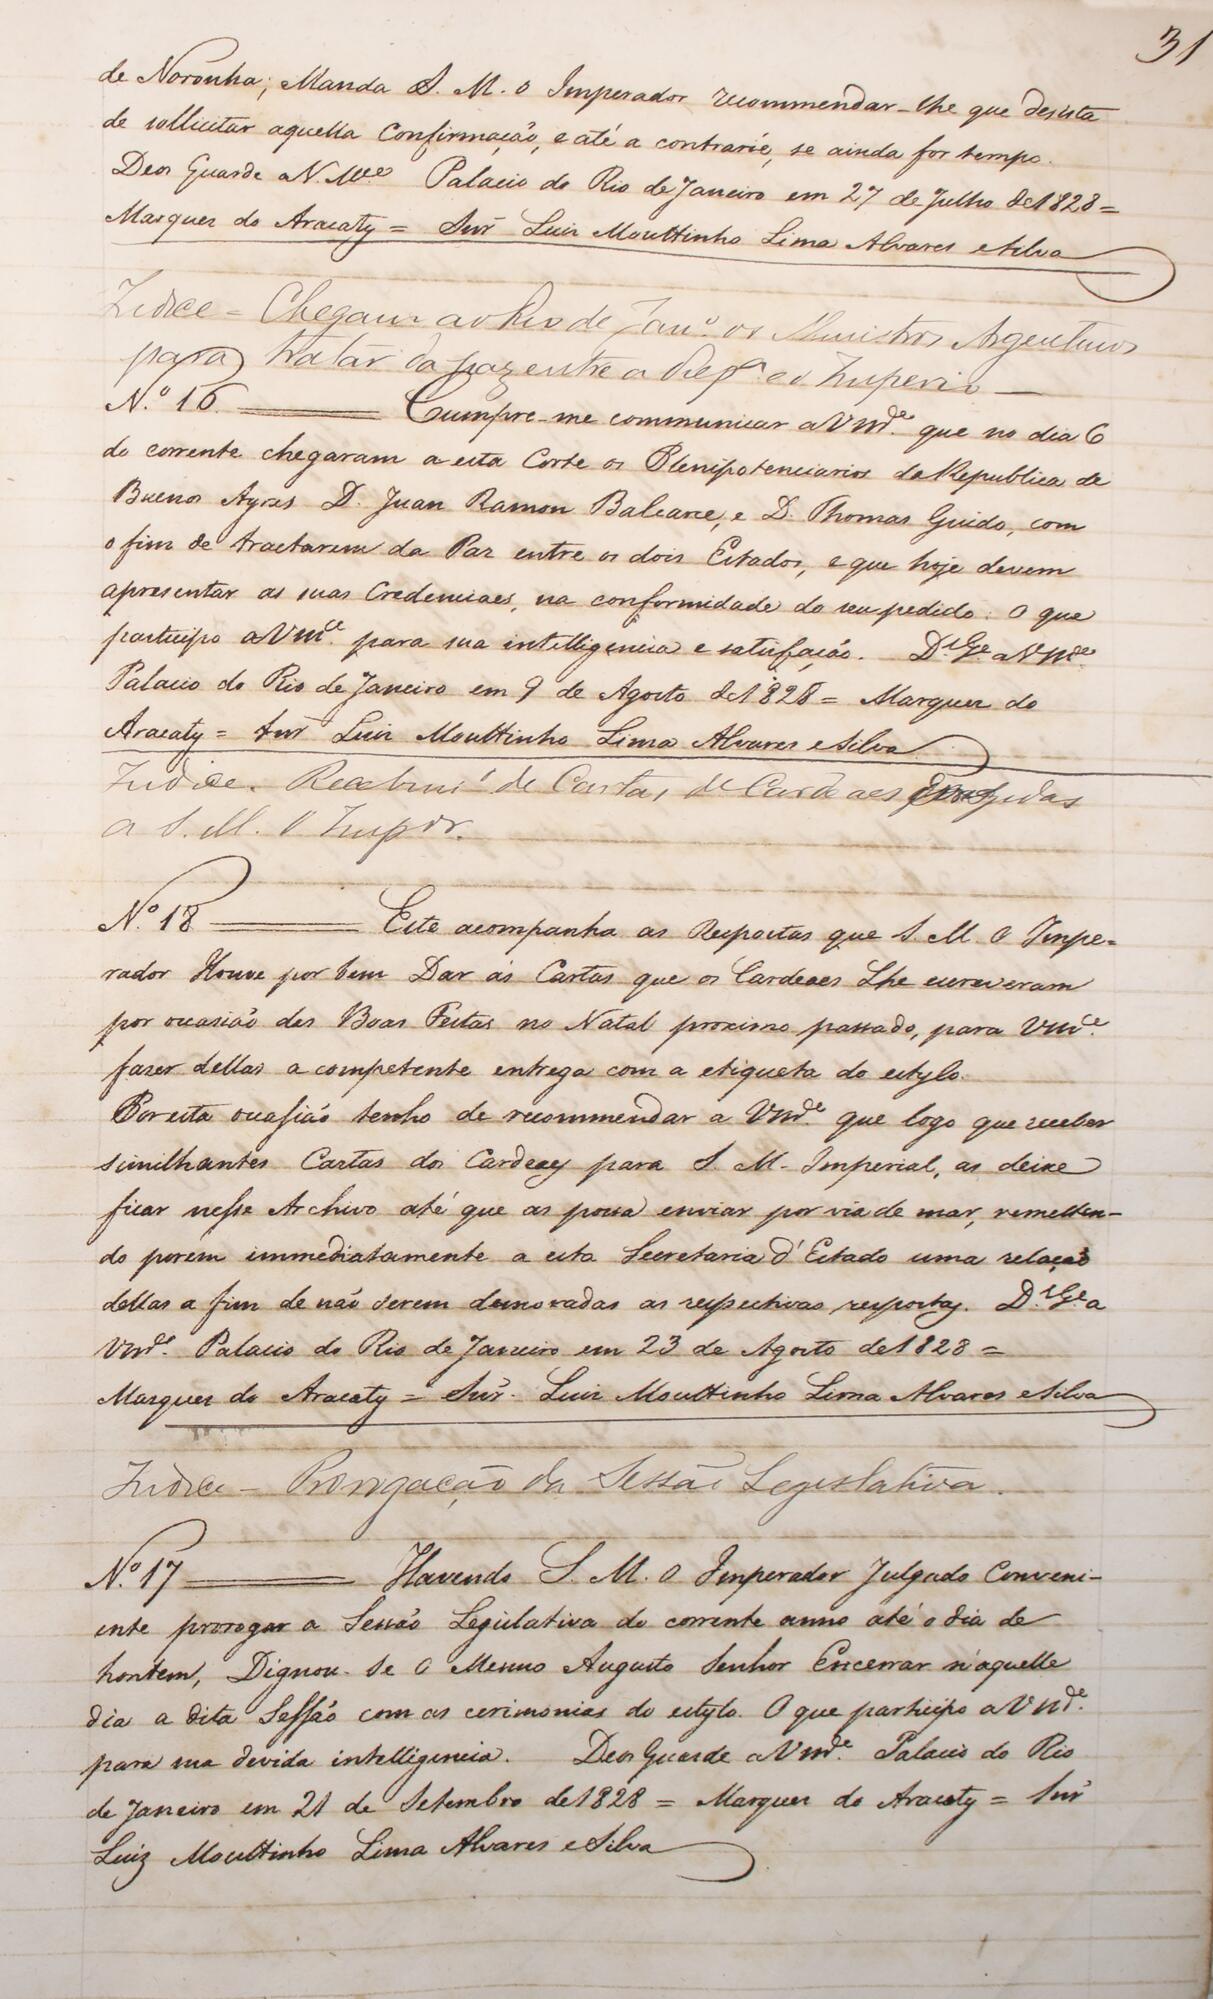 31
de Noronha; Manda S. M. o Imperador recommendar-lhe que desista
de sollicitar aquella Confirmação, e até a contrarie, se ainda for tempo.
Deos Guarde a V. Mce Palacio do Rio de Janeiro em 27 de Julho de 1828 =
Marquez do Aracaty = Snr Luiz Mouttinho Lima Alvares e Silva
Indice - Chegam ao Rio de Janº os Ministros Argentinos
para tratar da paz entre a Repª e o Imperio —
N.º 16 ——— Cumpre-me communicar a Vmce. que no dia 6
do corrente chegaram a esta Corte os Plenipotenciarios da Republica de
Buenos Ayres D. Juan Ramon Balcarce, e D. Thomas Guido, com
o fim de tractarem da Paz entre os dois Estados, e que hoje devem
apresentar as suas Credenciaes, na conformidade do seu pedido: O que
participo a Vmce. para sua intelligencia e satisfação. Ds. Ge. a Vmce
Palacio do Rio de Janeiro em 9 de Agosto de 1828 = Marquez do
Aracaty = Snr Luiz Mouttinho Lima Alvares e Silva
Indice. Recebimto de Cartas de Cardeaes dirigidas
a S. M. O Impor.
N.º 18 ——— Esta acompanha as Respostas que S. M. O Impe-
rador Houve por bem Dar ás Cartas que os Cardeaes Lhe escreveram
por occasião das Boas Festas no Natal proximo passado, para Vmce.
fazer dellas a competente entrega com a etiqueta do estylo.
Por esta occasião tenho de recommendar a Vmce. que logo que receber
similhantes Cartas dos Cardeaes para S. M. Imperial, as deixe
ficar nesse Archivo até que as possa enviar por via de mar, remetten-
do porém immediatamente a esta Secretaria d'Estado uma relação
dellas a fim de não serem demoradas as respectivas respostas. Ds. Ge. a
Vmce. Palacio do Rio de Janeiro em 23 de Agosto de 1828 =
Marquez do Aracaty = Snr. Luiz Mouttinho Lima Alvares e Silva
Indice - Prorogação da Sessão Legislativa.
N.º 17 ——— Havendo S. M. O Imperador Julgado Conveni-
ente prorogar a Sessão Legislativa do corrente anno até o dia de
hontem, Dignou-se O Mesmo Augusto Senhor Encerrar n'aquelle
dia a dita Sessão com as cerimonias do estylo. O que participo a Vmce.
para sua devida intelligencia. Deos Guarde a Vmce. Palacio do Rio
de Janeiro em 21 de Setembro de 1828 = Marquez do Aracaty = Snr
Luiz Mouttinho Lima Alvares e Silva